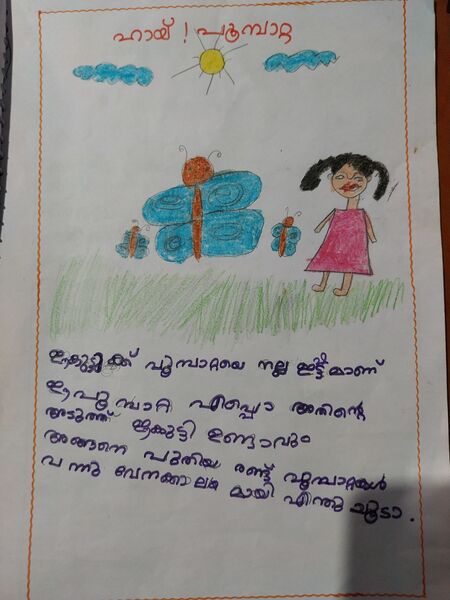 ഹായ് ! പൂമ്പാറ്റ
ഈകുട്ടിക്ക് പൂമ്പാറ്റയെ നല്ല ഇഷ്ടമാണ്
ഈപൂമ്പാറ്റ എപ്പൊ അതിന്റെ
അടുത്ത് ഈക്കുട്ടി ഉണ്ടാവും
അങ്ങനെ പുതിയ രണ്ട് പൂമ്പാറ്റകൾ
വന്നു വേനക്കാലമായി എന്തു ചൂടാ .